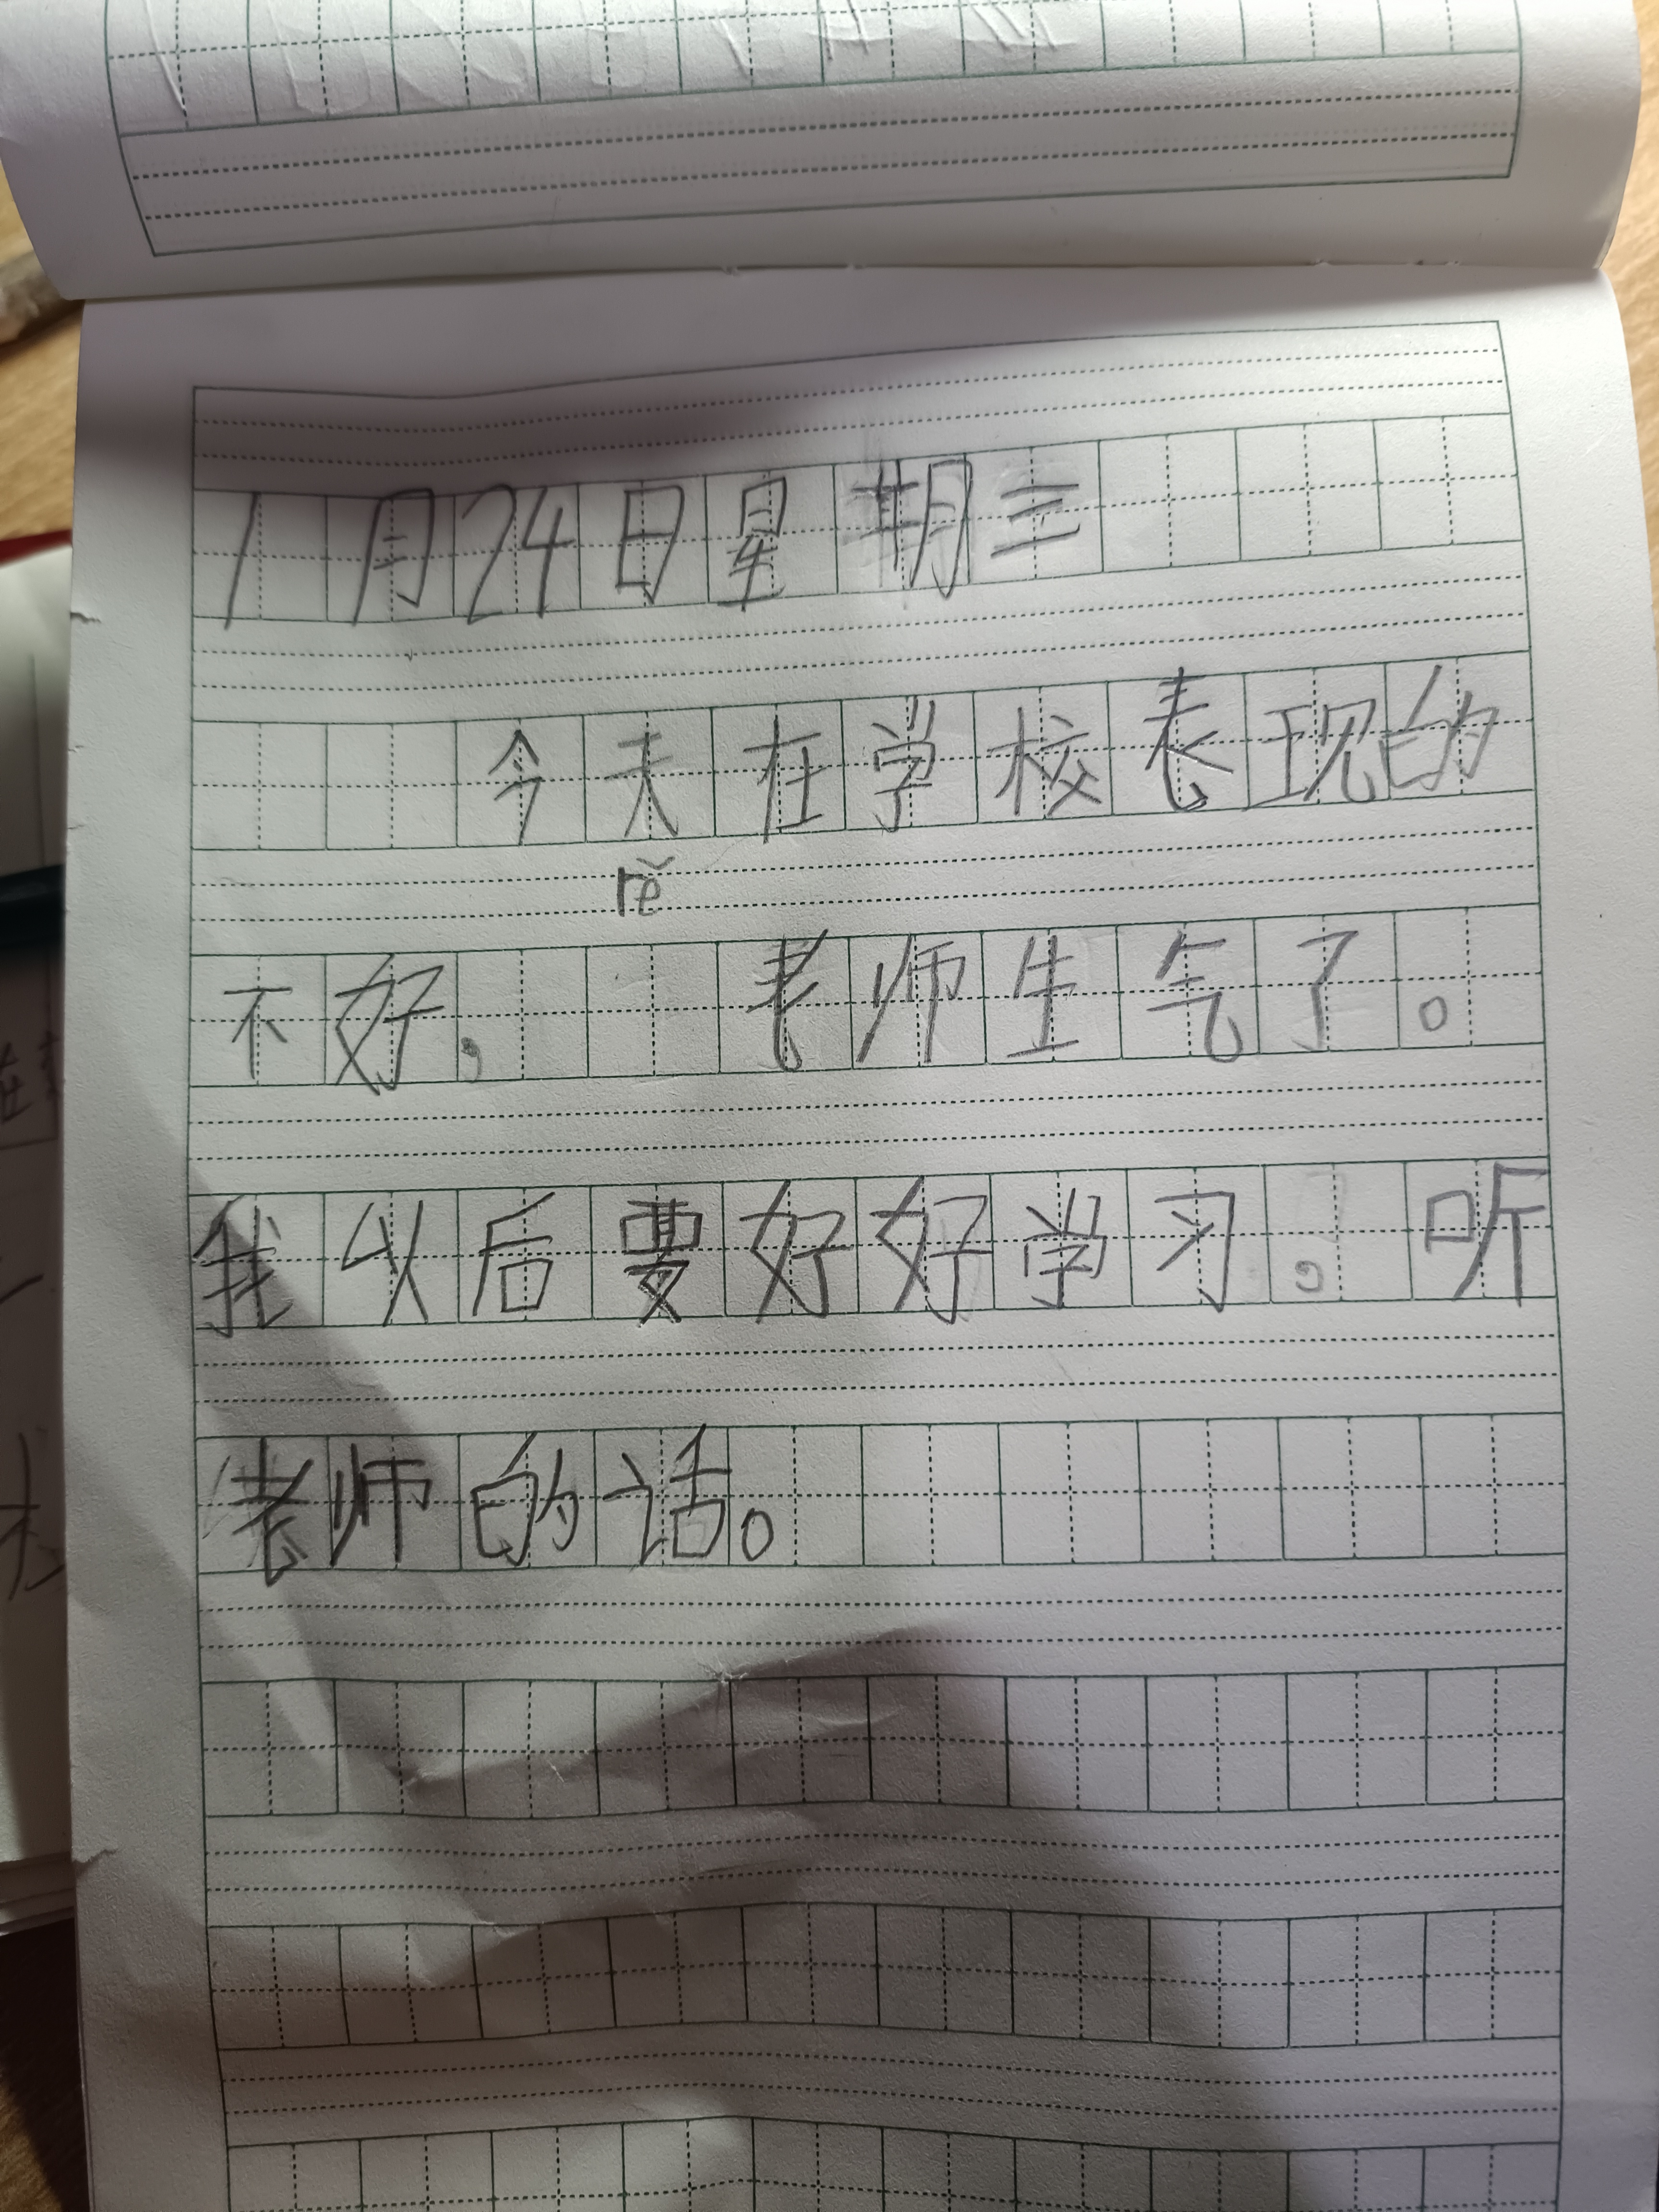 1月24日星期三
今天在学校表现的
rě
不好, 老师生气了。
我以后要好好学习。听
老师的话。